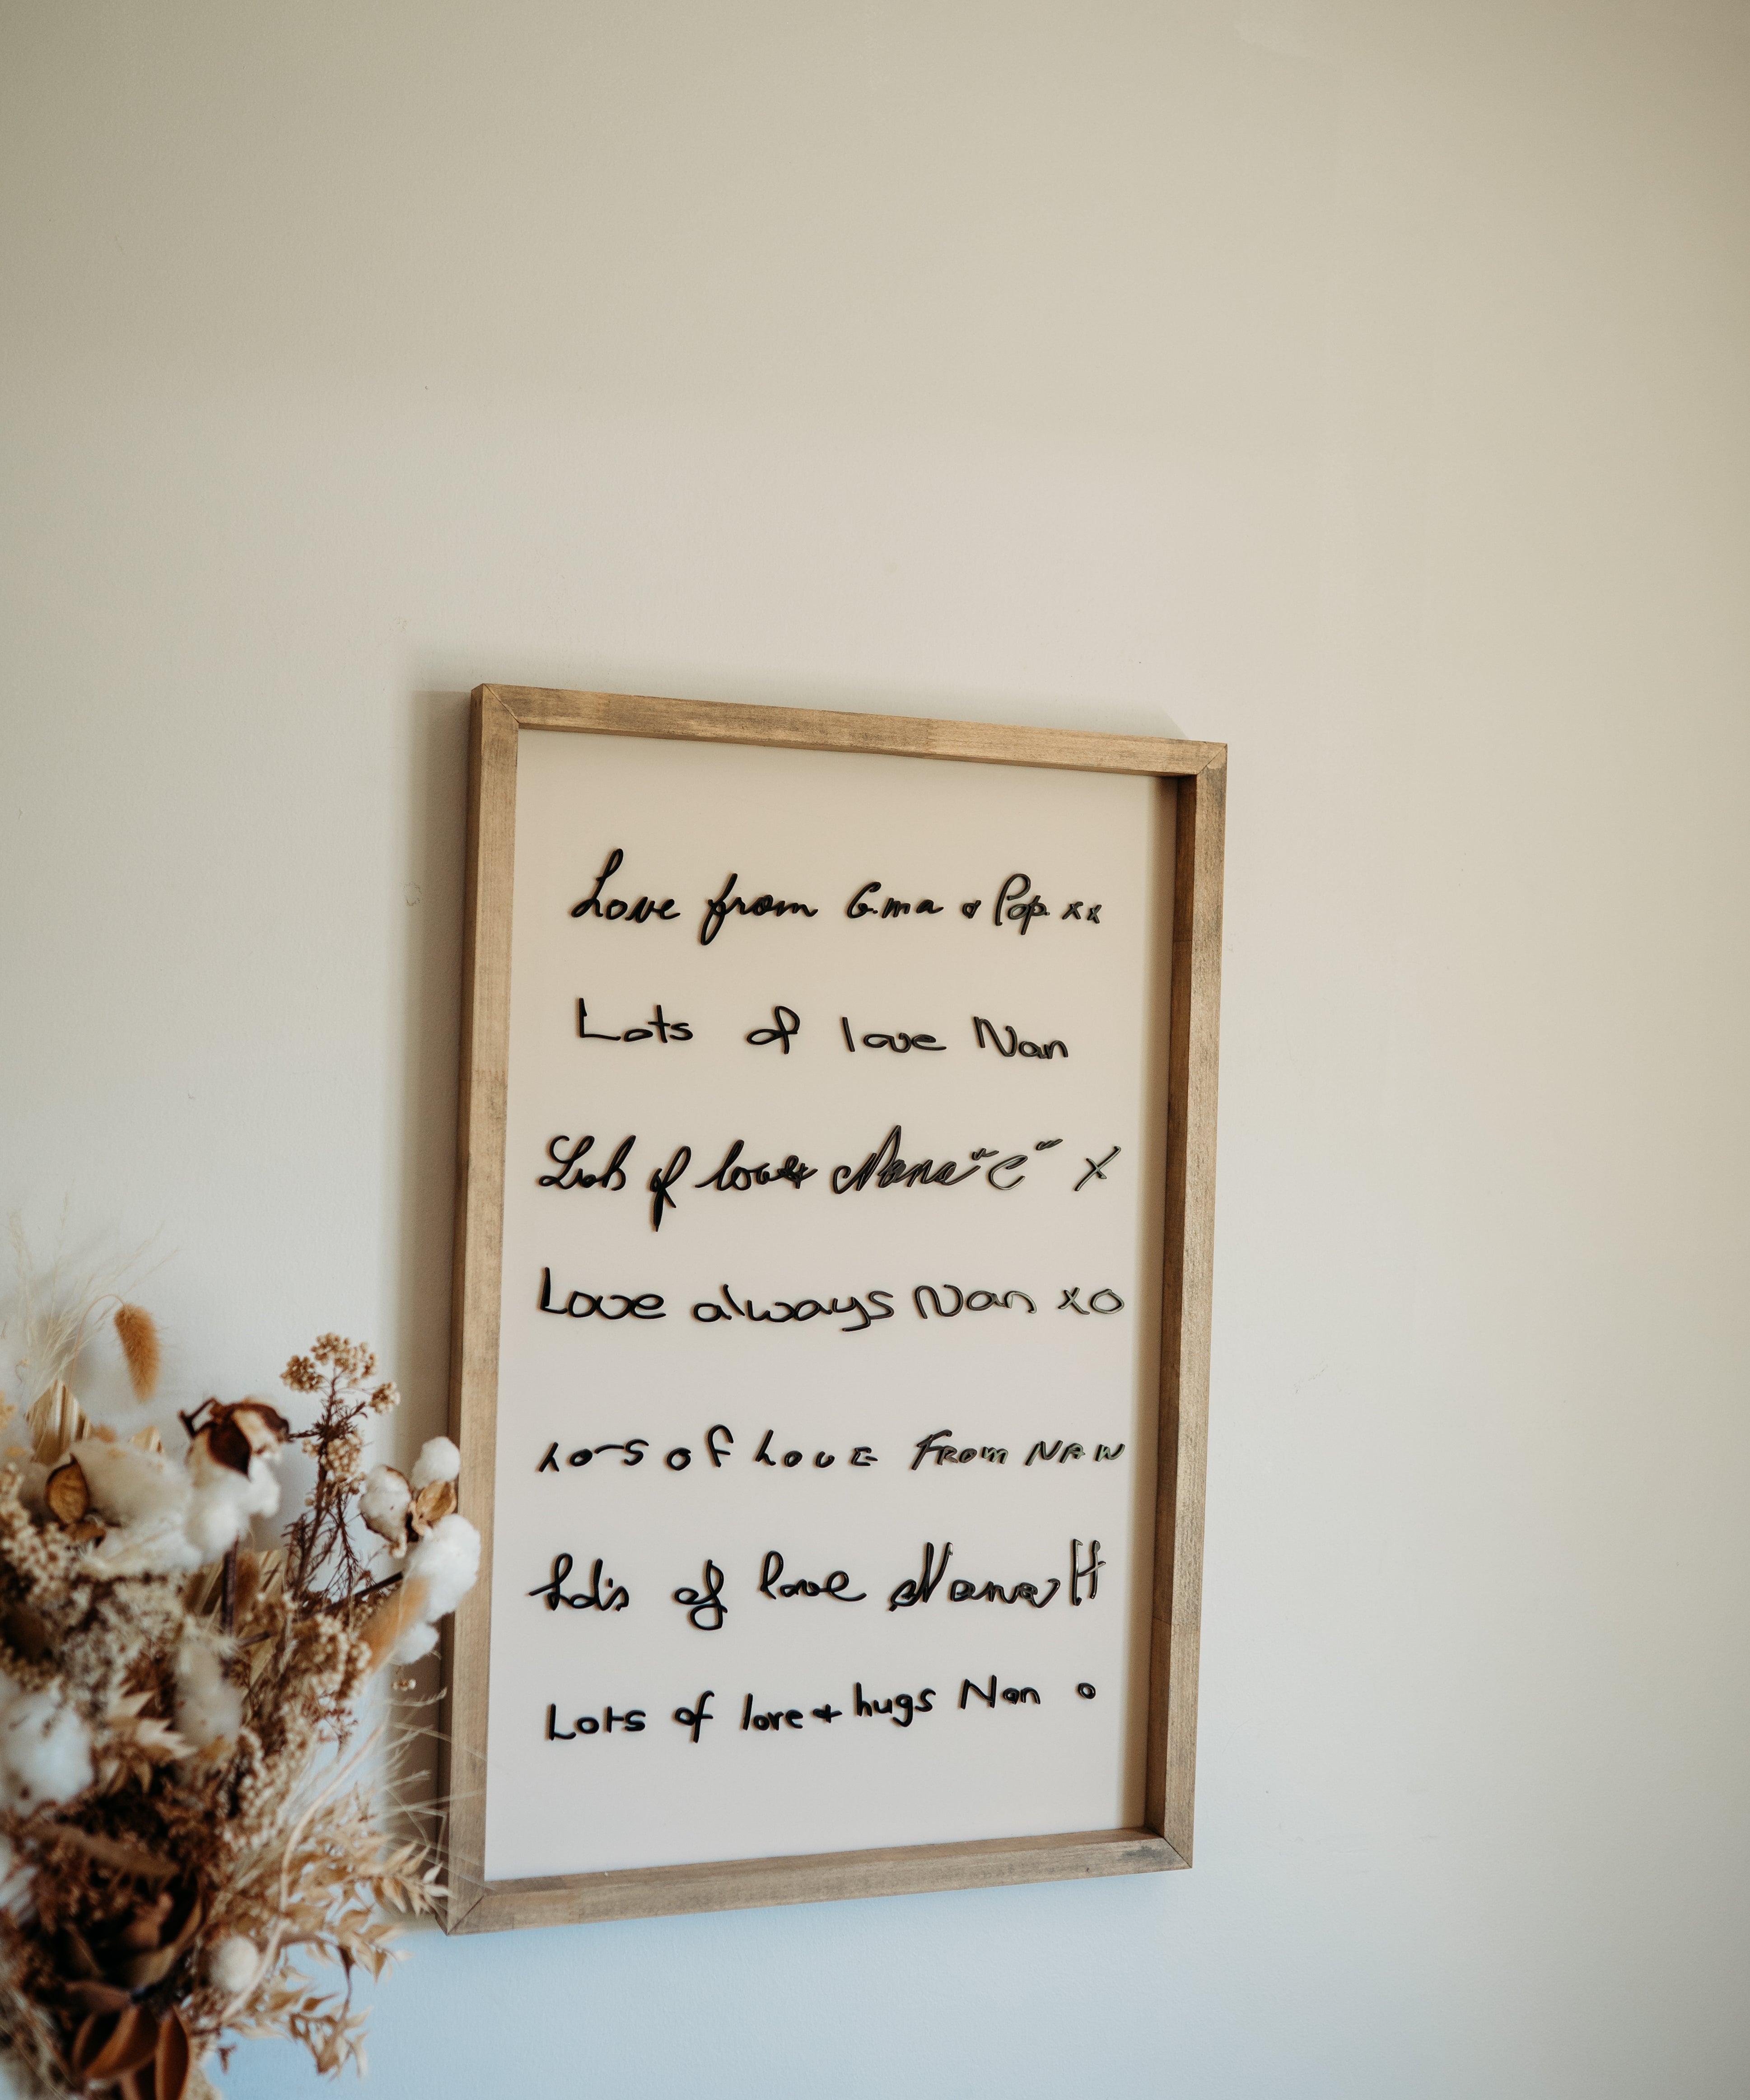 Love from G.ma & Pop. xx
Lots of love Nan
Lots of love Nana "C" X
Love always Nan xo
LOTS OF LOVE FROM NAN
Lots of love Nana H
Lots of love + hugs Nan o